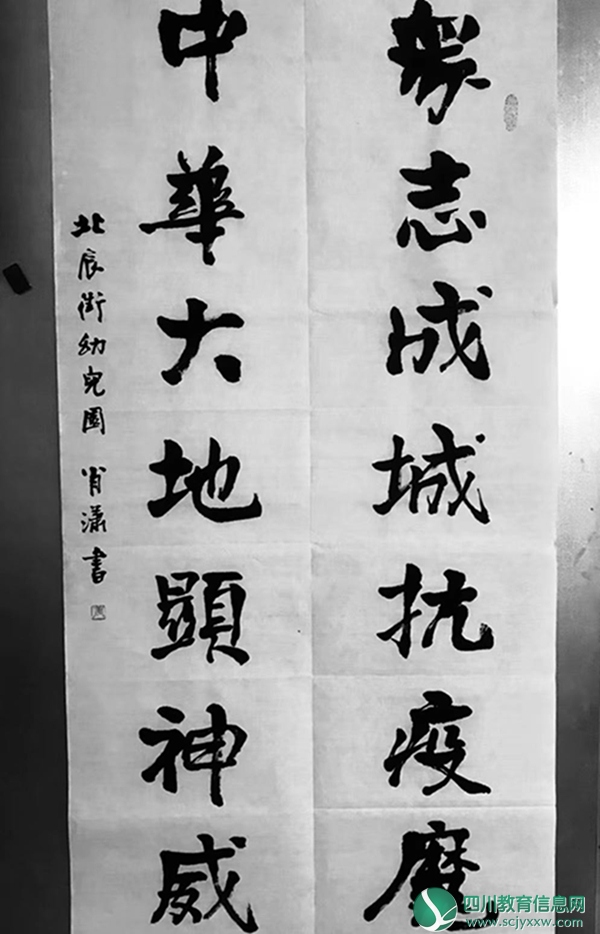 眾志成城抗疫魔
中華大地顯神威
北辰街幼兒園 肖瀟書
四川教育信息网
www.scjyxxw.com